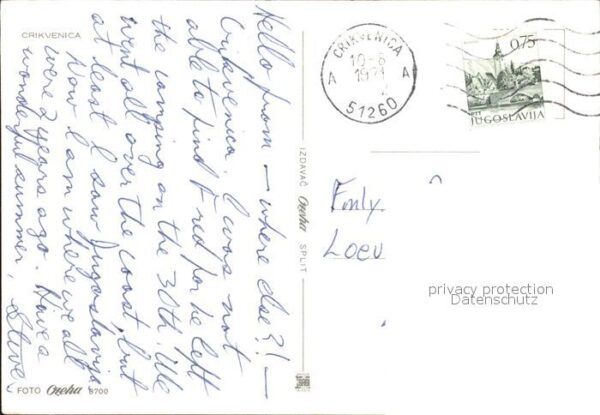 CRIKVENICA
Hello from – where else?! –
Crikvenica. I was not
able to find Fred for he left
the camping on the 30th. We
went all over the coast, but
at least I saw Jugoslavija
Now I am where we all
were 2 years ago. Have a
wonderful summer,
Steve
FOTO Ozeha 8700
IZDAVAČ Ozeha SPLIT
CRIKVENICA
A A
10-6
1971
51260
0,75
JUGOSLAVIJA
Emly
Loeu
privacy protection
Datenschutz